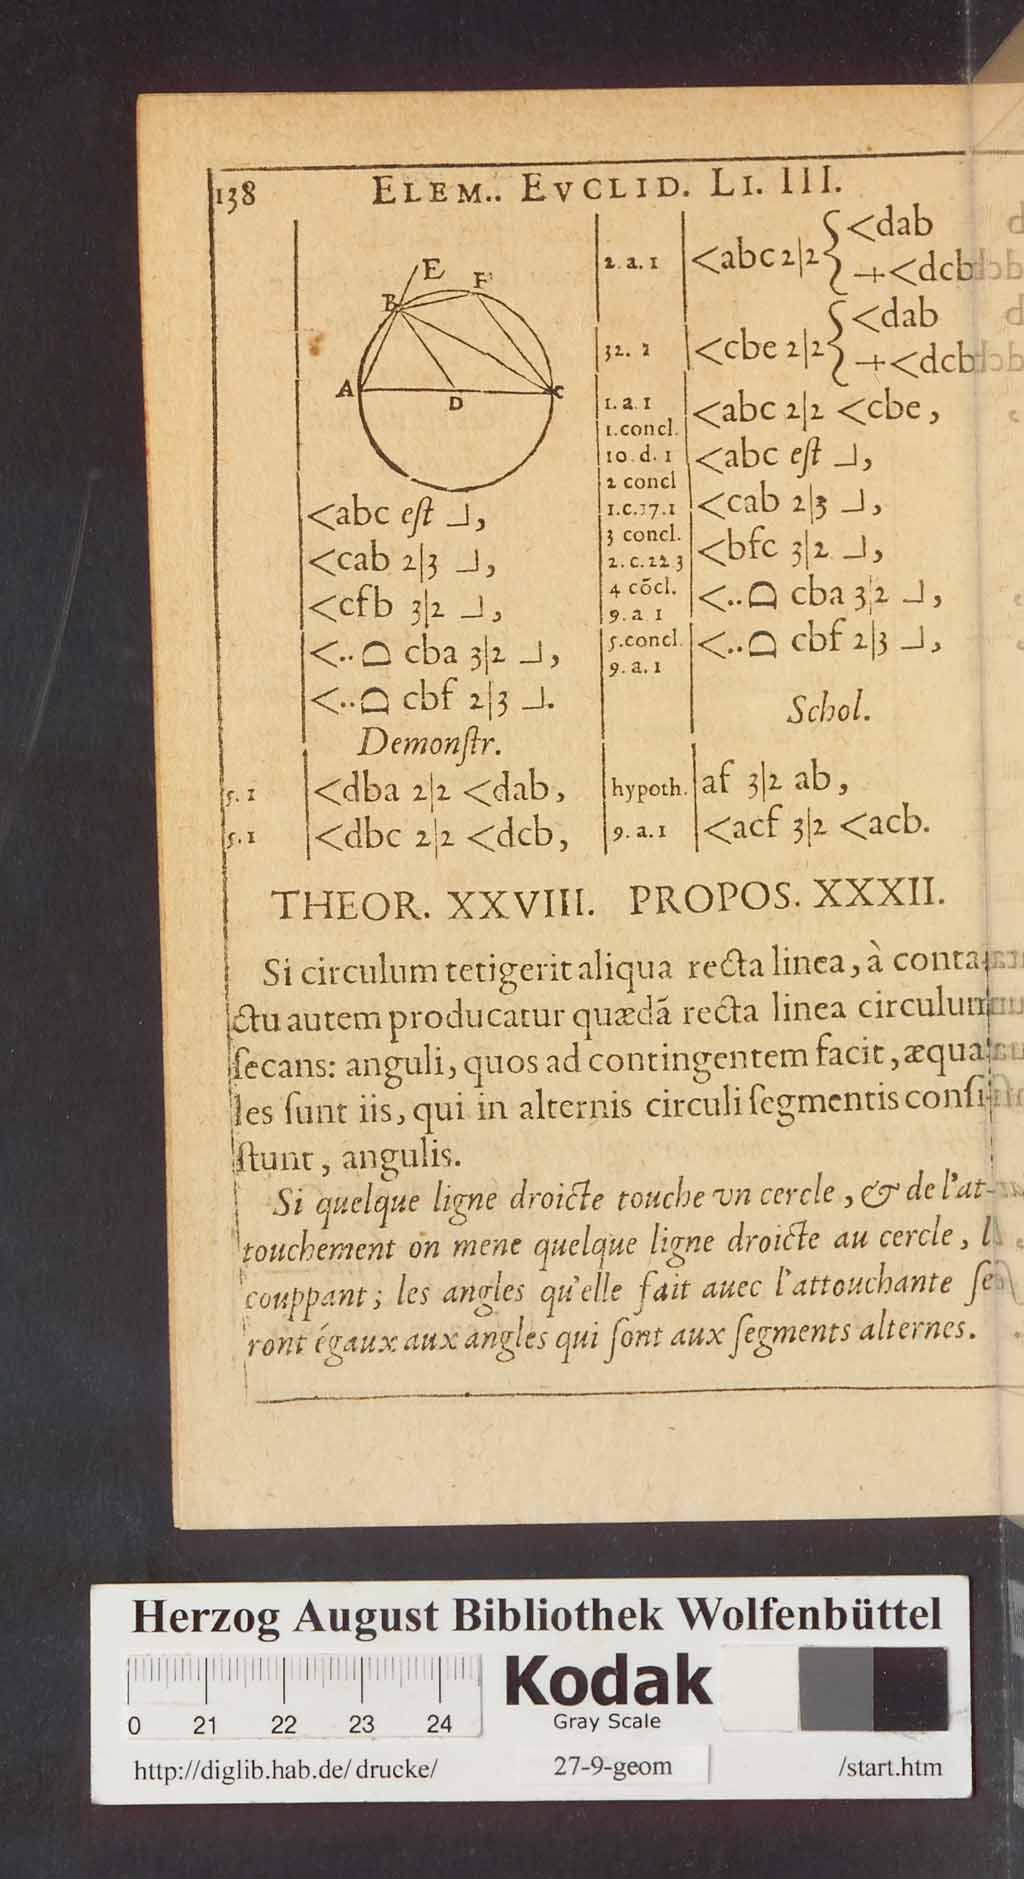 138 ELEM.. EVCLID. LI. III.
E
F
B
A
D
C
<abc eſt ⅃,
<cab 2|3 ⅃,
<cfb 3|2 ⅃,
<..⌓ cba 3|2 ⅃,
<..⌓ cbf 2|3 ⅃.
Demonſtr.
5. 1 <dba 2|2 <dab,
5. 1 <dbc 2|2 <dcb,
2. a. 1 <abc 2|2 { <dab
+<dcb
32. 1 <cbe 2|2 { <dab
+<dcb
1. a 1 <abc 2|2 <cbe,
1.concl.
10. d. 1 <abc eſt ⅃,
2 concl
1.c.17.1 <cab 2|3 ⅃,
3 concl.
2. c. 22 3 <bfc 3|2 ⅃,
4 cõcl.
9. a 1 <..⌓ cba 3|2 ⅃,
5.concl.
9. a. 1 <..⌓ cbf 2|3 ⅃,
Schol.
hypoth. af 3|2 ab,
9. a. 1 <acf 3|2 <acb.
THEOR. XXVIII. PROPOS. XXXII.
Si circulum tetigerit aliqua recta linea, à conta-
ctu autem producatur quædã recta linea circulum
ſecans: anguli, quos ad contingentem facit, æqua-
les ſunt iis, qui in alternis circuli ſegmentis conſi-
ſtunt, angulis.
Si quelque ligne droicte touche vn cercle, & de l'at-
touchement on mene quelque ligne droicte au cercle, l
couppant; les angles qu'elle fait auec l'attouchante ſe-
ront égaux aux angles qui ſont aux ſegments alternes.
Herzog August Bibliothek Wolfenbüttel
0 21 22 23 24
Kodak
Gray Scale
http://diglib.hab.de/drucke/ 27-9-geom /start.htm